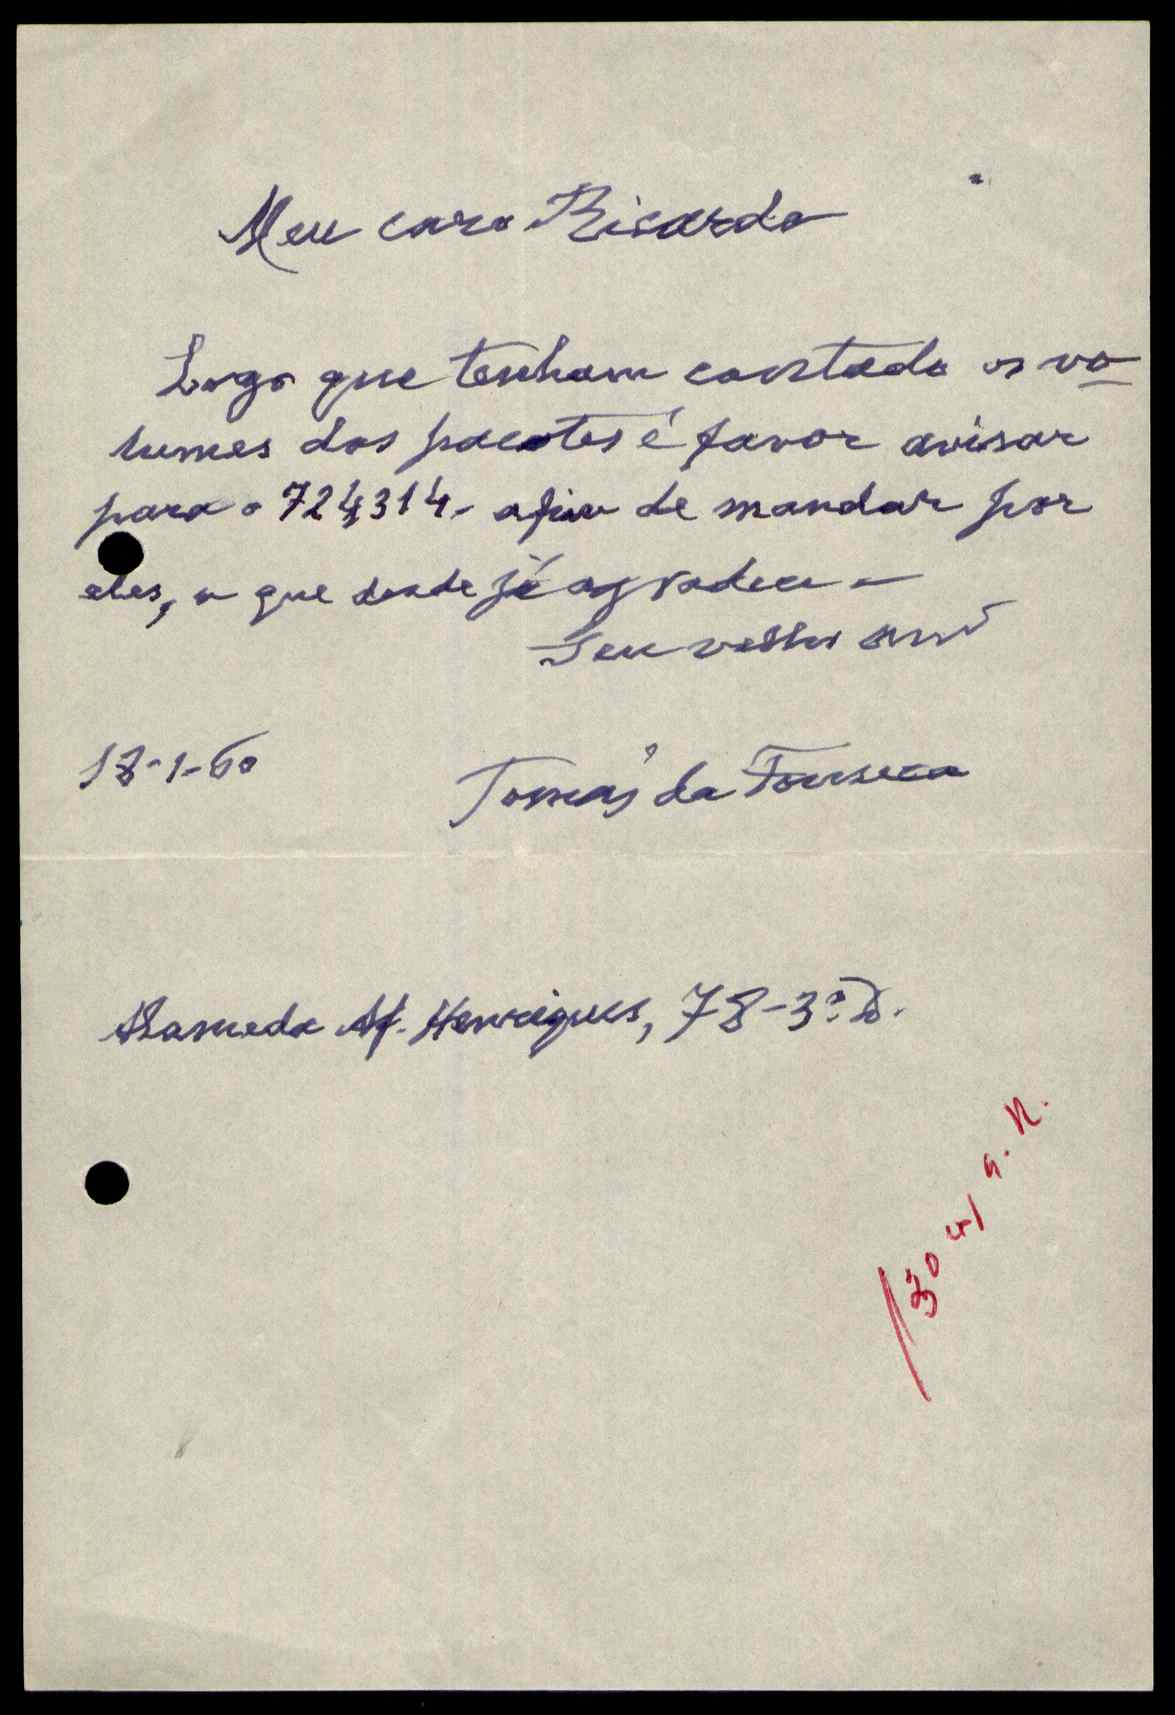 Meu caro Ricardo
Logo que tenham contado os vo-
lumes dos pacotes é favor avisar
para o 724314 - afim de mandar por
eles, o que desde já agradece -
Seu velho amº
18-1-60
Tomás da Fonseca
Alameda Af. Henriques, 78-3º D.